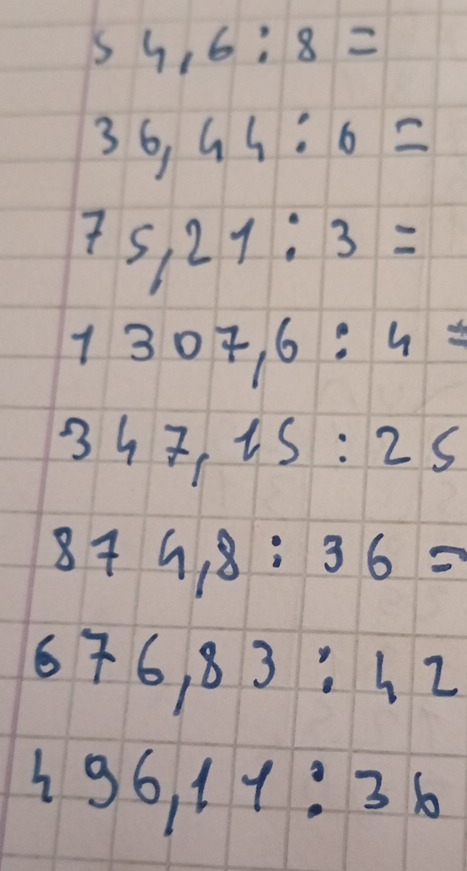 54,6:8=
36,44:6=
75,21:3=
1307,6:4=
347,15:25
874,8:36=
676,83:42
496,11:36